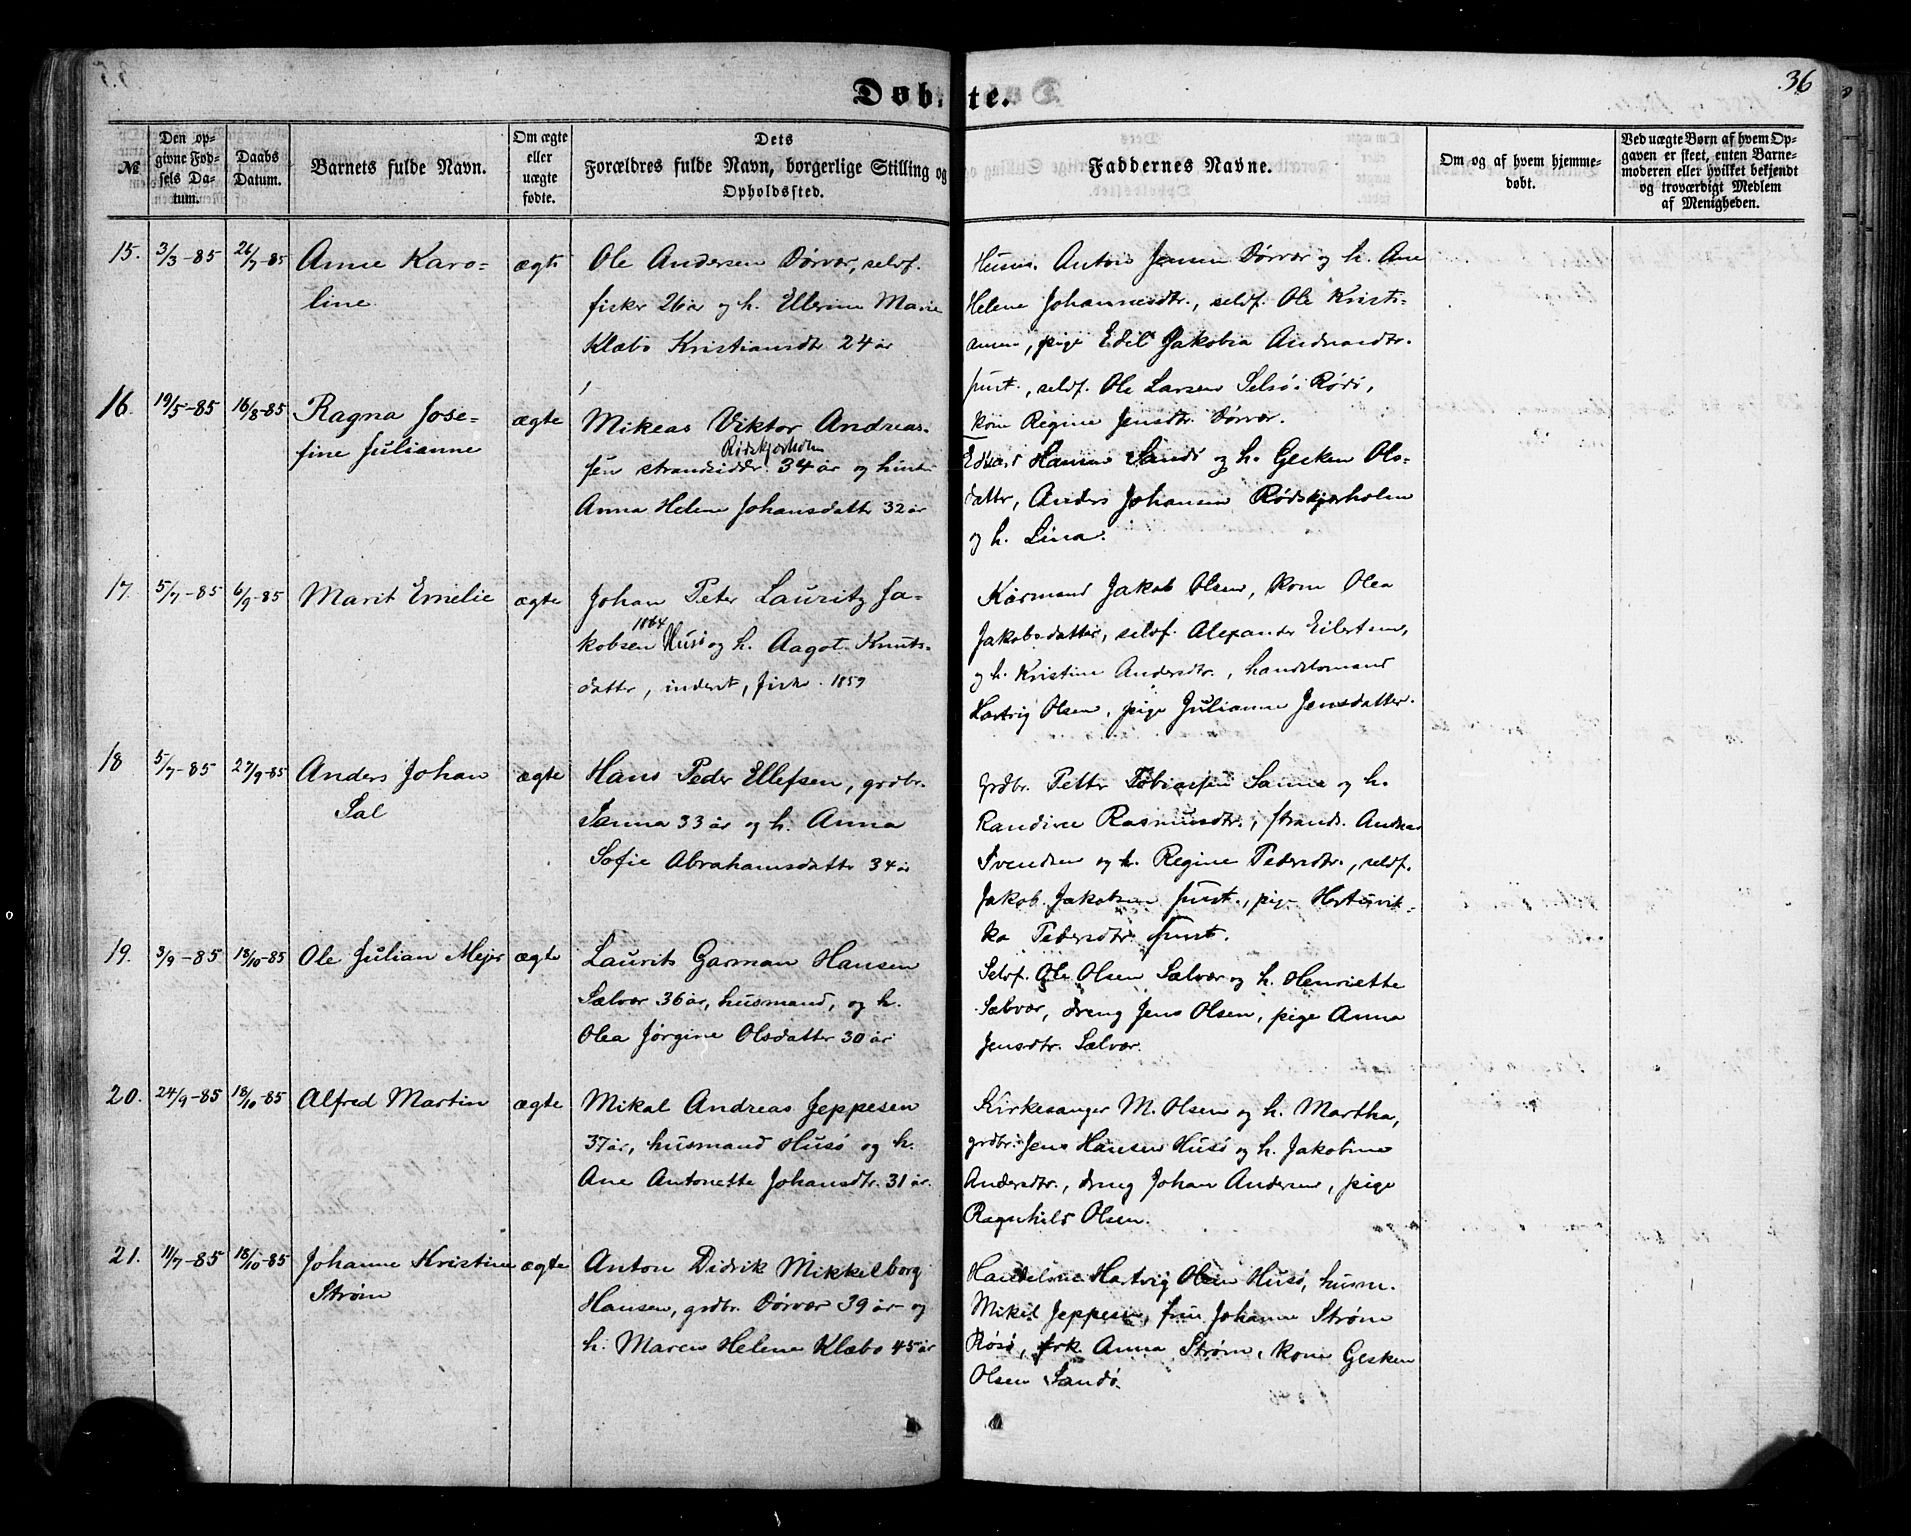 36
Døbte.
№
Den op-
givne Fød-
sels Da-
tum.
Daabs
Datum.
Barnets fulde Navn.
Om ægte
eller
uægte
fødte.
Dets
Forældres fulde Navn, borgerlige Stilling og
Opholdssted.
Faddernes Navne.
Om og af hvem hjemme-
døbt.
Ved uægte Børn af hvem Op-
gaven er skeet, enten Barne-
moderen eller hvilket bekjendt
og troværdigt Medlem
af Menigheden.
15. 3/3-85 26/7-85 Anne Karo-
line
ægte
Ole Andersen Dørvær, seldf.
fisker 26 år og h. Ellerine Marie
Klæbo Kristiansdtr 24 år
Husm. Anton Jensen Dørvær og h. Ane
Helene Johannesdtr., seldf. Ole Kristi-
ansen, pige Edel Jakobia Andreasdtr.
smst., seldf. Ole Larsen Selsø i Rödö,
kone Regine Jensdtr. Dørvær.
16. 19/5-85 16/8-85 Ragna Jose-
fine Julianne
ægte
Mikeas Viktor Andreas-
Rødskjærholm
sen strandsidder 34 år og hustr
Anna Helene Johansdatter 32 år
Edvard Hansen Sandö og h. Gesken Ols-
datter, Anders Johansen Rødskjærholm
og h. Lina.
17. 5/7-85 6/9-85 Marit Emelie
ægte
Johan Peter Lauritz Ja-
1864
kobsen Husö og h. Aagot Knuts-
datter, inderst, fisker. 1859
Kårmand Jakob Olsen, kone Olea
Jakobsdatter, seldf. Alexander Eilertsen,
og h. Kristine Andersdtr., handelsmand
Hartvig Olsen, pige Julianne Jensdatter.
18 5/7-85 27/9-85 Anders Johan
Sal
ægte
Hans Peder Ellefsen, grdbr.
Sanna 33 år og h. Anna
Sofie Abrahamsdatter 34 år
Grdbr. Petter Tobiassen Sanna og h.
Randine Rasmusdtr., strands. Andreas
Svendsen og h. Regine Pedersdtr., seldf.
Jakob Jakobsen smst., pige Hertsvik-
ka Pedersdtr. smst.
19. 3/9-85 18/10-85 Ole Julian Mejer
ægte
Laurits Garman Hansen
Sælvær 36 år, husmand, og h.
Olea Jørgine Olsdatter 30 år
Seldf. Ole Olsen Sælvær og h. Henriette
Sælvær, dreng Jens Olsen, pige Anna
Jensdtr. Sælvær.
20. 24/9-85 18/10-85 Alfred Martin
ægte
Mikal Andreas Jeppesen
37 år, husmand Husö og h.
Ane Antonette Johansdtr. 31 år.
Kirkesanger M. Olsen og h. Martha,
grdbr. Jens Hansen Husö og h. Jakobine
Andersdtr., dreng Johan Andersen, pige
Ragnhild Olsen.
21. 11/7-85 18/10-85 Johanne Kristine
Strøm
ægte
Anton Didrik Mikkelborg
Hansen, grdbr. Dørvær 39 år og
h. Maren Helene Klæbo 45 år
Handelsm. Hartvig Olsen Husö, husm.
Mikal Jeppesen, fru Johanne Strøm
Røsö, frk. Anna Strøm, kone Gesken
Olsen Sandö.